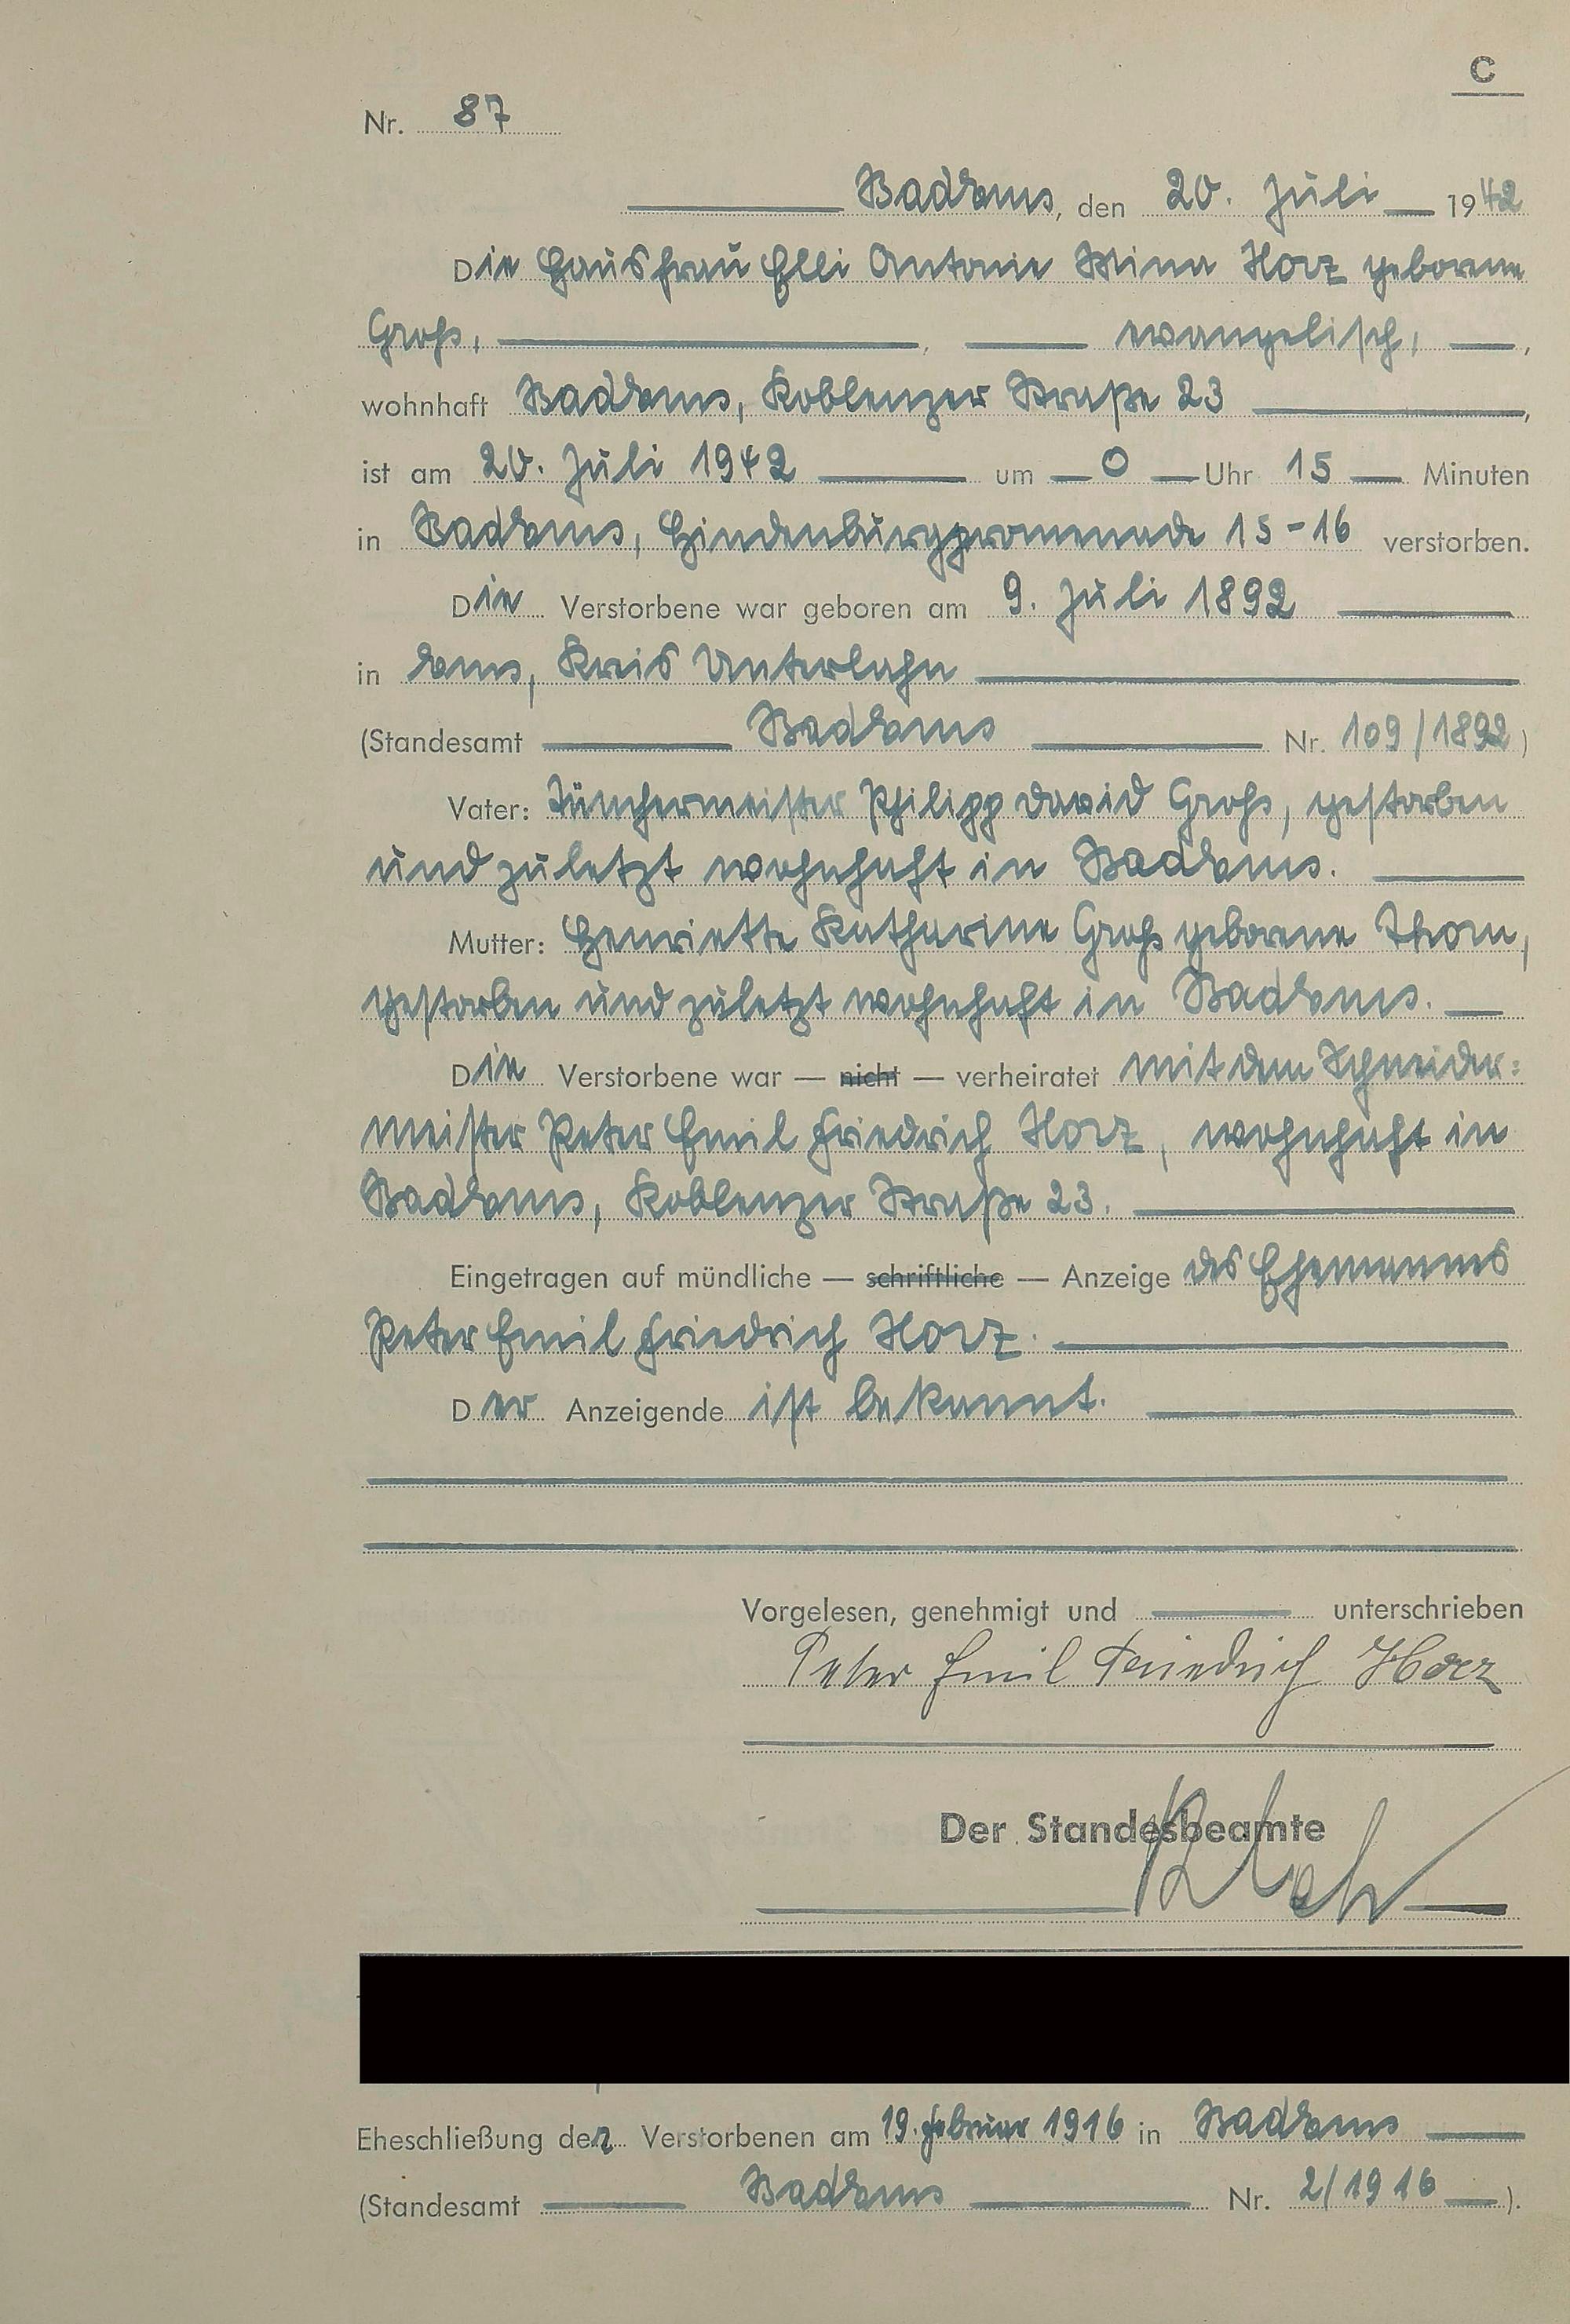 C
Nr. 87
Bad Ems, den 20. Juli 1942
Die Hausfrau Elli Antonie Mina Horz geborene
Groß, evangelisch,
wohnhaft Bad Ems, Koblenzer Straße 23,
ist am 20. Juli 1942 um 0 Uhr 15 Minuten
in Bad Ems, Hindenburgpromenade 15-16 verstorben.
Die Verstorbene war geboren am 9. Juli 1892
in Ems, Kreis Unterlahn
(Standesamt Bad Ems Nr. 109/1892)
Vater: Tünchermeister Philipp David Groß, gestorben
und zuletzt wohnhaft in Bad Ems.
Mutter: Henriette Katharine Groß geborene Thom,
gestorben und zuletzt wohnhaft in Bad Ems.
Die Verstorbene war — nicht — verheiratet mit dem Schneider=
meister Peter Emil Friedrich Horz, wohnhaft in
Bad Ems, Koblenzer Straße 23.
Eingetragen auf mündliche — schriftliche — Anzeige des Ehemanns
Peter Emil Friedrich Horz.
Der Anzeigende ist bekannt.
Vorgelesen, genehmigt und unterschrieben
Peter Emil Friedrich Horz
Der Standesbeamte
Eheschließung der Verstorbenen am 19. Februar 1916 in Bad Ems
(Standesamt Bad Ems Nr. 2/1916).